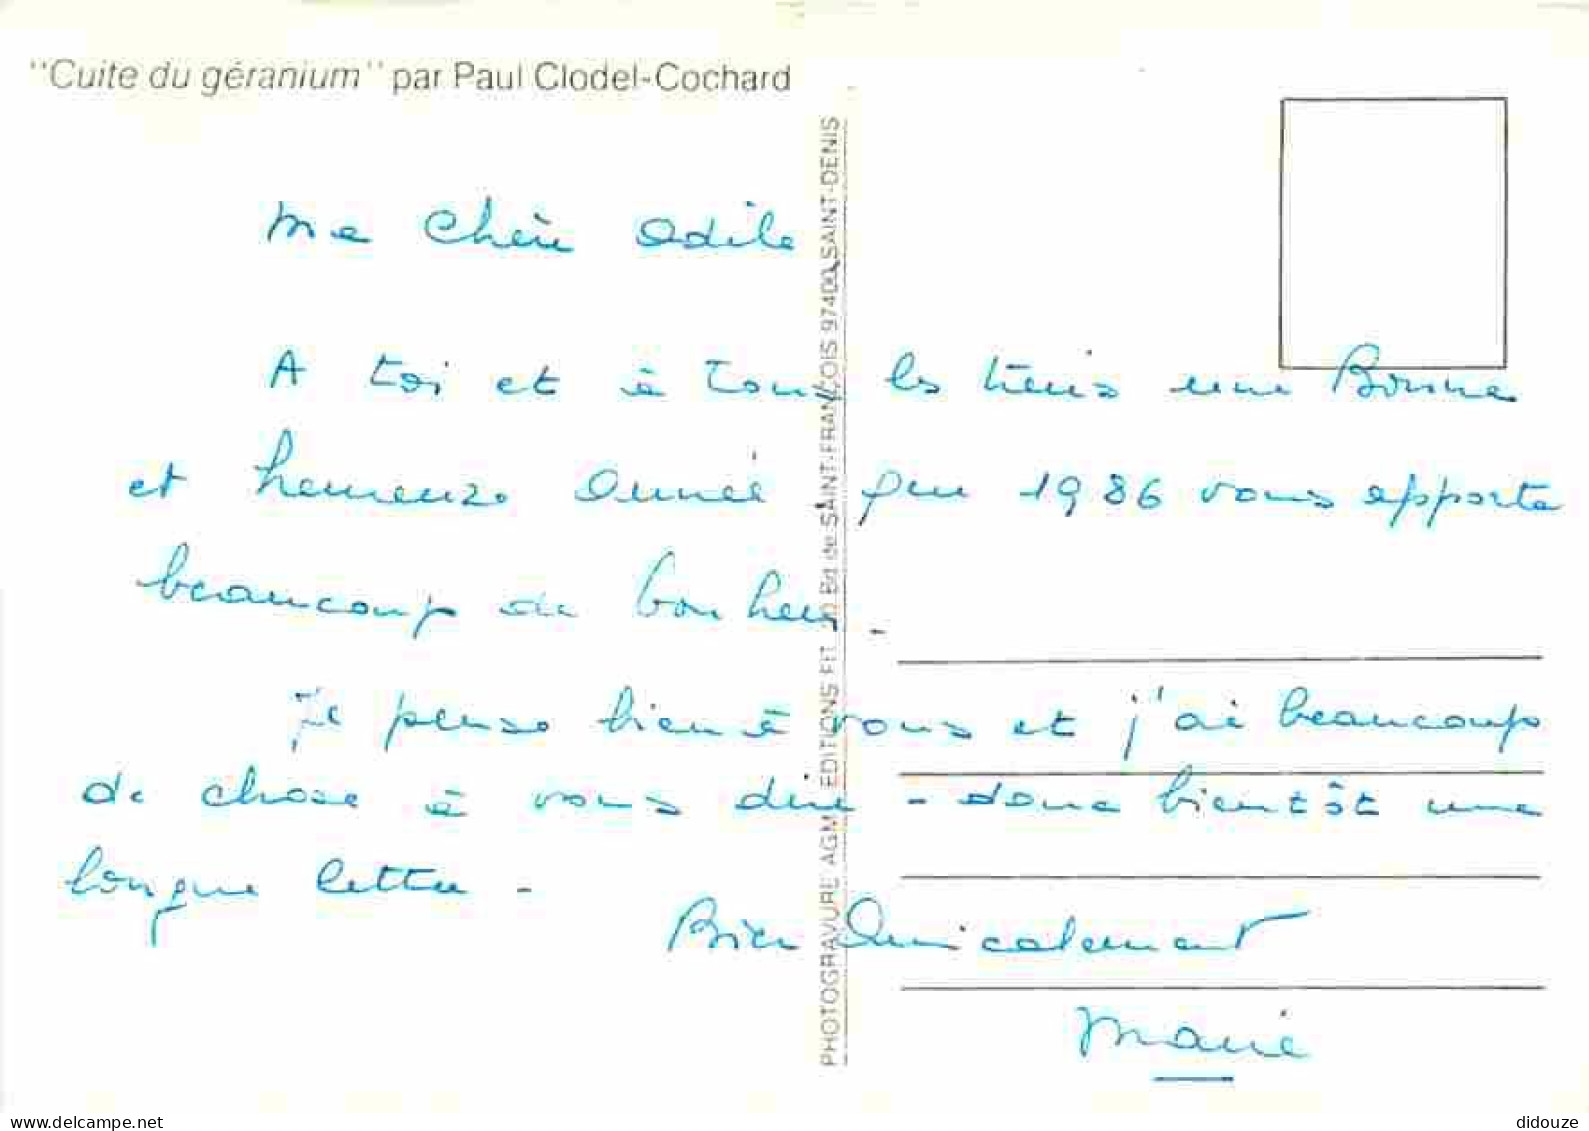 "Cuite du géranium" par Paul Clodel-Cochard
Ma chère Odile
A toi et à tous les tiens une Bonne
et heureuse Année que 1986 vous apporte
beaucoup de bonheur -
Je pense bien à vous et j'ai beaucoup
de chose à vous dire - donc bientôt une
longue lettre -
Bien Amicalement
Marie
PHOTOGRAVURE AGM EDITIONS Bd de SAINT-FRANÇOIS 97400 SAINT-DENIS
delcampe.net
didouze